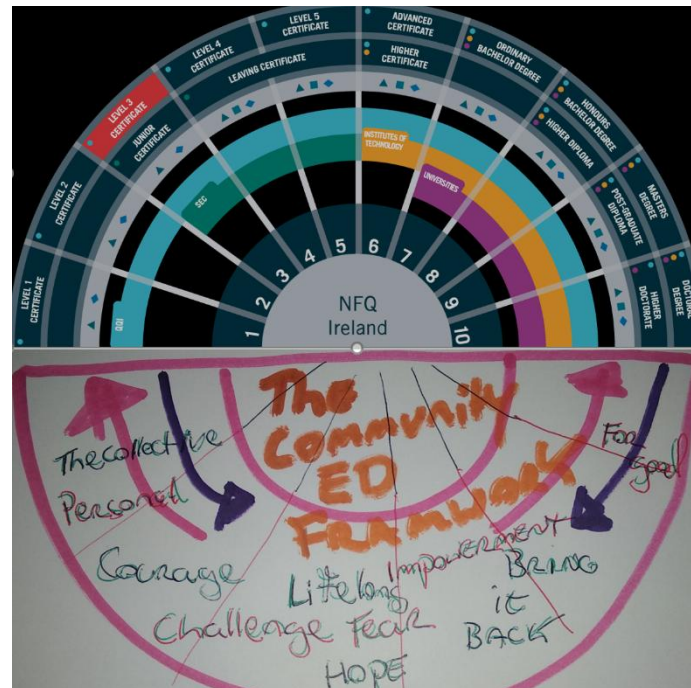 LEVEL 1
CERTIFICATE
LEVEL 2
CERTIFICATE
LEVEL 3
CERTIFICATE
JUNIOR
CERTIFICATE
LEVEL 4
CERTIFICATE
LEVEL 5
CERTIFICATE
LEAVING CERTIFICATE
ADVANCED
CERTIFICATE
HIGHER
CERTIFICATE
ORDINARY
BACHELOR DEGREE
HONOURS
BACHELOR DEGREE
HIGHER DIPLOMA
MASTERS
DEGREE
POST-GRADUATE
DIPLOMA
DOCTORAL
DEGREE
HIGHER
DOCTORATE
QQI
SEC
INSTITUTES OF
TECHNOLOGY
UNIVERSITIES
1 2 3 4 5 6 7 8 9 10
NFQ
Ireland
The
Community
ED
FRAMWORK
The collective
Personal
Courage
Lifelong
Challenge Fear
HOPE
IMPOWERMENT
BRING
it
BACK
For
good